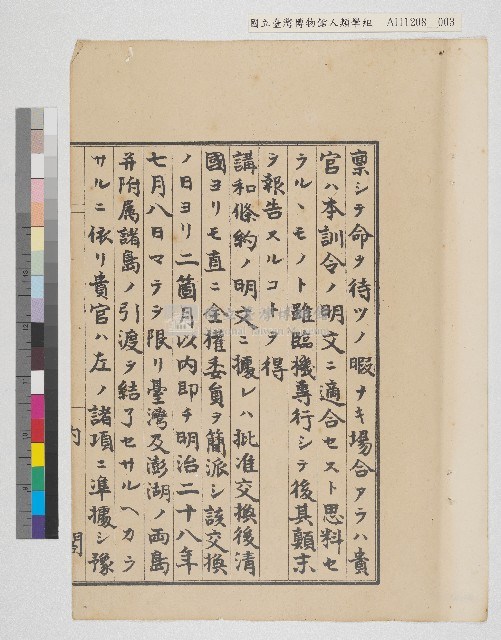 國立臺灣博物館人類學組 AH1208 003
稟シテ命ヲ待ツノ暇ナキ場合アラハ貴
官ハ本訓令ノ明文ニ適合セスト思料セ
ラルヽモノト雖臨機專行シテ後其顛末
ヲ報告スルコトヲ得
講和條約ノ明文ニ據レハ批准交換後清
國ヨリモ直ニ全權委員ヲ簡派シ該交換
ノ日ヨリ二箇月以內即チ明治二十八年
七月八日マテヲ限リ臺灣及澎湖ノ両島
并附属諸島ノ引渡ヲ結了セサルヘカラ
サルニ依リ貴官ハ左ノ諸項ニ準據シ豫
內閣